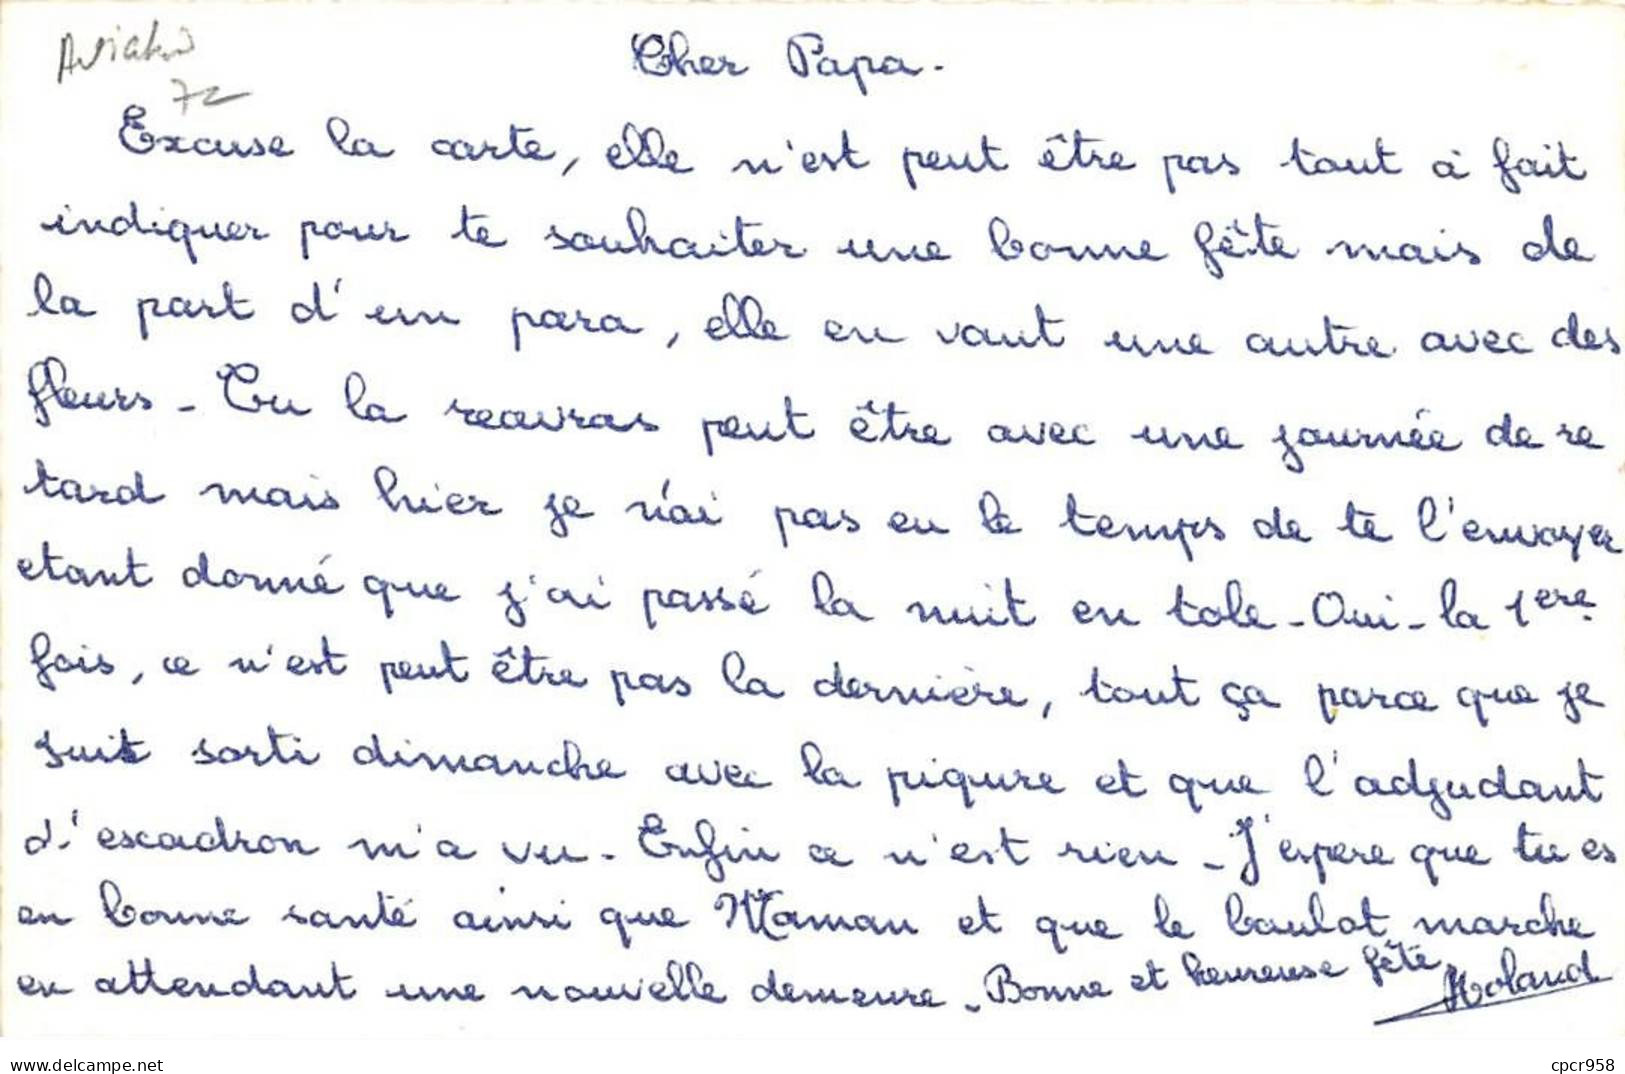 Aviation
72
Cher Papa.
Excuse la carte, elle n'est peut être pas tout à fait
indiquer pour te souhaiter une bonne fête mais de
la part d'un para, elle en vaut une autre avec des
fleurs - Tu la reavras peut être avec une journée de re
tard mais hier je n'ai pas eu le temps de te l'envoyer
etant donné que j'ai passé la nuit en tole - Oui - la 1ere
fois, ce n'est peut être pas la dernière, tout ça parce que je
suis sorti dimanche avec la piqure et que l'adjudant
d'escadron m'a vu. Enfin ce n'est rien - J'espere que tu es
en bonne santé ainsi que Maman et que le boulot marche
en attendant une nouvelle demeure. Bonne et heureuse fête
Roland
delcampe.net
cpcr958